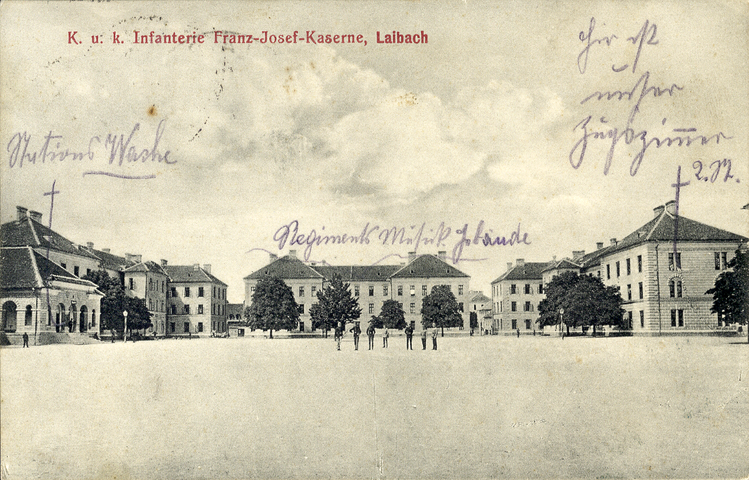 K. u. k. Infanterie Franz-Josef-Kaserne, Laibach
Hier ist
unser
Zugszimmer
2. St.
Stations Wache
Regiments Musik Gebäude